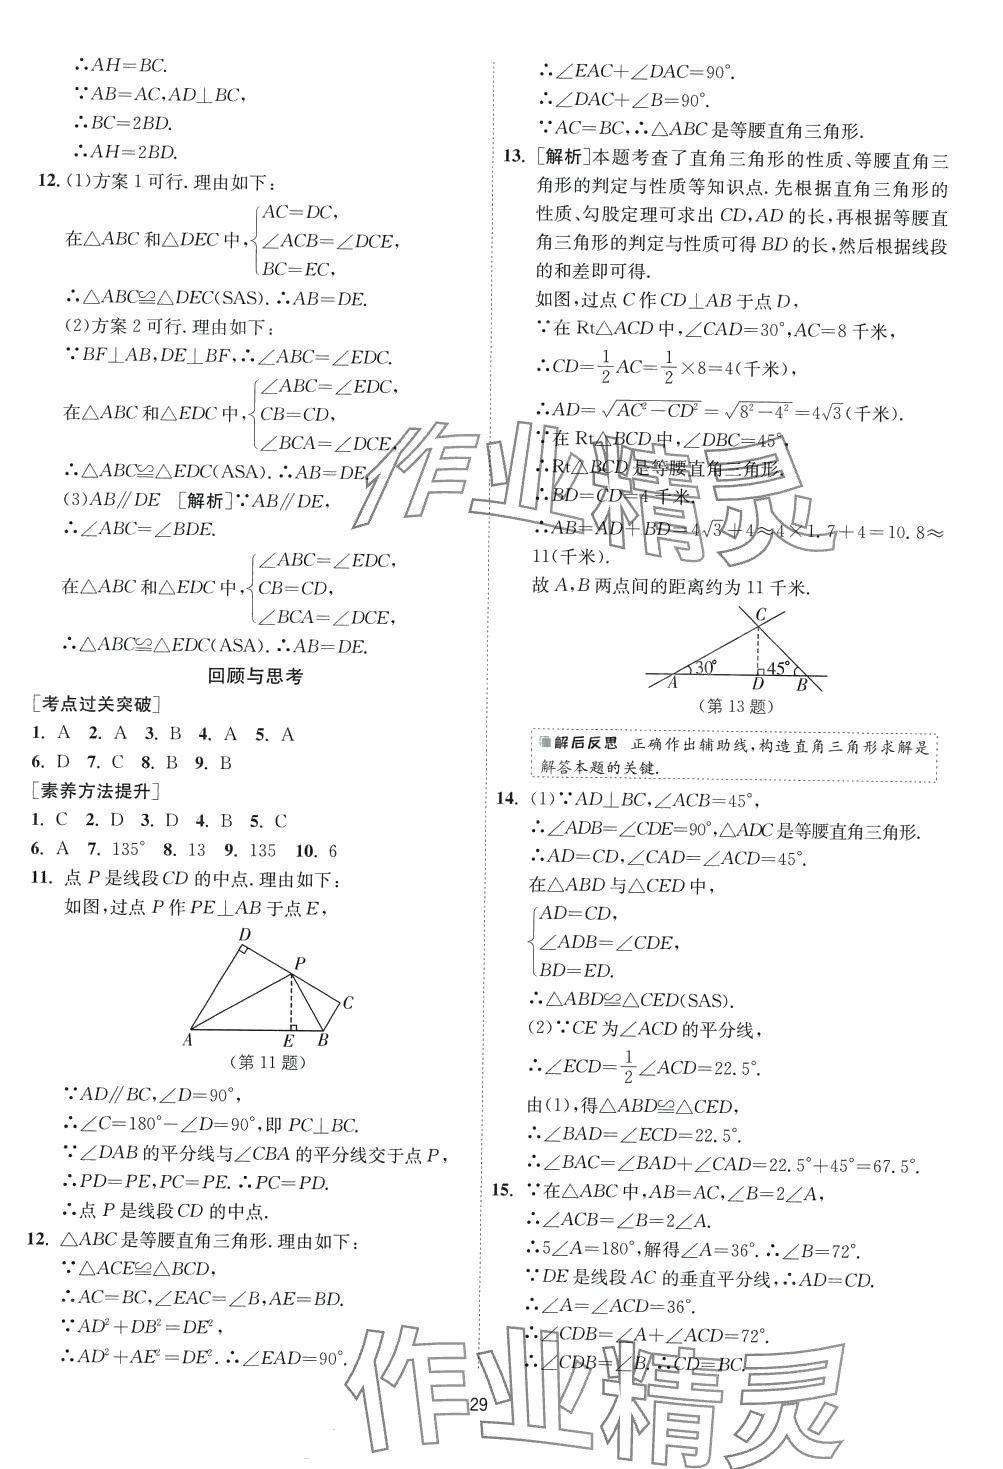 ∴AH=BC.
∵AB=AC,AD⊥BC,
∴BC=2BD.
∴AH=2BD.
12. (1)方案 1 可行. 理由如下:
在△ABC 和△DEC 中,{AC=DC,
∠ACB=∠DCE,
BC=EC,
∴△ABC≌△DEC(SAS). ∴AB=DE.
(2)方案 2 可行. 理由如下:
∵BF⊥AB,DE⊥BF,∴∠ABC=∠EDC.
在△ABC 和△EDC 中,{∠ABC=∠EDC,
CB=CD,
∠BCA=∠DCE,
∴△ABC≌△EDC(ASA). ∴AB=DE.
(3)AB∥DE [解析]∵AB∥DE,
∴∠ABC=∠BDE.
在△ABC 和△EDC 中,{∠ABC=∠EDC,
CB=CD,
∠BCA=∠DCE,
∴△ABC≌△EDC(ASA). ∴AB=DE.
回顾与思考
[考点过关突破]
1. A 2. A 3. B 4. A 5. A
6. D 7. C 8. B 9. B
[素养方法提升]
1. C 2. D 3. D 4. B 5. C
6. A 7. 135° 8. 13 9. 135 10. 6
11. 点 P 是线段 CD 的中点. 理由如下:
如图,过点 P 作 PE⊥AB 于点 E,
D
P
C
A E B
(第 11 题)
∵AD∥BC,∠D=90°,
∴∠C=180°−∠D=90°,即 PC⊥BC.
∵∠DAB 的平分线与∠CBA 的平分线交于点 P,
∴PD=PE,PC=PE. ∴PC=PD.
∴点 P 是线段 CD 的中点.
12. △ABC 是等腰直角三角形. 理由如下:
∵△ACE≌△BCD,
∴AC=BC,∠EAC=∠B,AE=BD.
∵AD²+DB²=DE²,
∴AD²+AE²=DE². ∴∠EAD=90°.
∴∠EAC+∠DAC=90°.
∴∠DAC+∠B=90°.
∵AC=BC,∴△ABC 是等腰直角三角形.
13. [解析]本题考查了直角三角形的性质、等腰直角三
角形的判定与性质等知识点. 先根据直角三角形的
性质、勾股定理可求出 CD,AD 的长,再根据等腰直
角三角形的判定与性质可得 BD 的长,然后根据线段
的和差即可得.
如图,过点 C 作 CD⊥AB 于点 D,
∵在 Rt△ACD 中,∠CAD=30°,AC=8 千米,
∴CD=1/2 AC=1/2×8=4(千米),
∴AD=√(AC²−CD²)=√(8²−4²)=4√3(千米).
∵在 Rt△BCD 中,∠DBC=45°,
∴Rt△BCD 是等腰直角三角形.
∴BD=CD=4 千米.
∴AB=AD+BD=4√3+4≈4×1.7+4=10.8≈
11(千米).
故 A,B 两点间的距离约为 11 千米.
C
30° 45°
A D B
(第 13 题)
解后反思 正确作出辅助线,构造直角三角形求解是
解答本题的关键.
14. (1)∵AD⊥BC,∠ACB=45°,
∴∠ADB=∠CDE=90°,△ADC 是等腰直角三角形.
∴AD=CD,∠CAD=∠ACD=45°.
在△ABD 与△CED 中,
{AD=CD,
∠ADB=∠CDE,
BD=ED.
∴△ABD≌△CED(SAS).
(2)∵CE 为∠ACD 的平分线,
∴∠ECD=1/2∠ACD=22.5°.
由(1),得△ABD≌△CED,
∴∠BAD=∠ECD=22.5°.
∴∠BAC=∠BAD+∠CAD=22.5°+45°=67.5°.
15. ∵在△ABC 中,AB=AC,∠B=2∠A,
∴∠ACB=∠B=2∠A.
∴5∠A=180°,解得∠A=36°. ∴∠B=72°.
∵DE 是线段 AC 的垂直平分线,∴AD=CD.
∴∠A=∠ACD=36°.
∴∠CDB=∠A+∠ACD=72°.
∴∠CDB=∠B. ∴CD=BC.
29
作业精灵
作业精灵